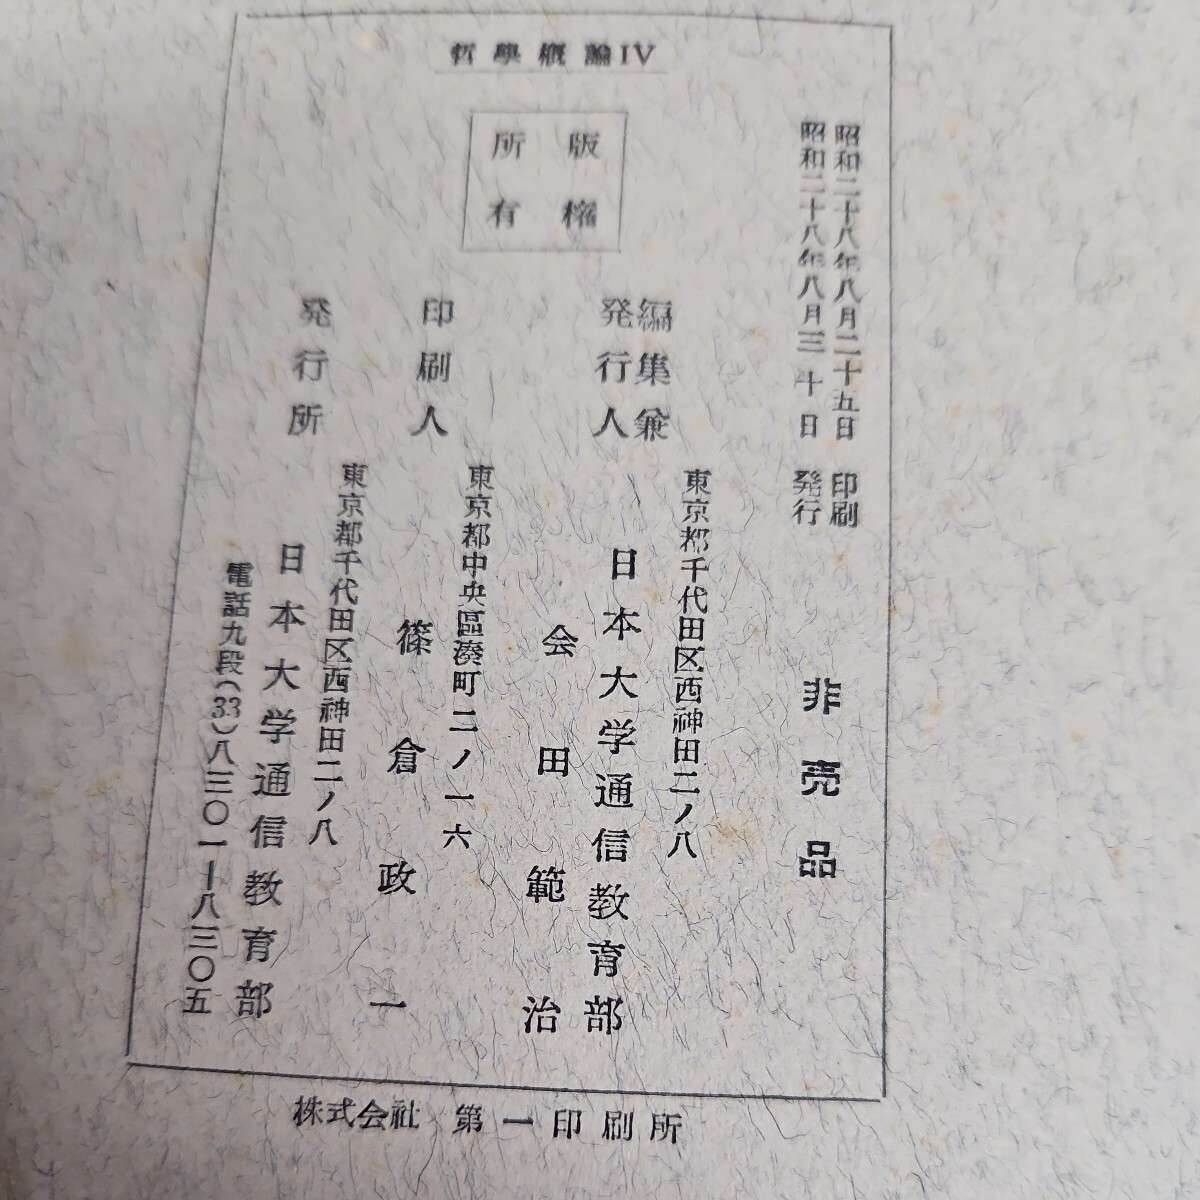 哲學概論IV
昭和二十八年八月二十五日 印刷
昭和二十八年八月三十日 発行
非売品
版権
所有
東京都千代田区西神田二ノ八
編集兼
発行人
日本大学通信教育部
会田範治
東京都中央區湊町二ノ一六
印刷人
篠倉政一
東京都千代田区西神田二ノ八
発行所
日本大学通信教育部
電話九段(33)八三〇一―八三〇五
株式会社 第一印刷所